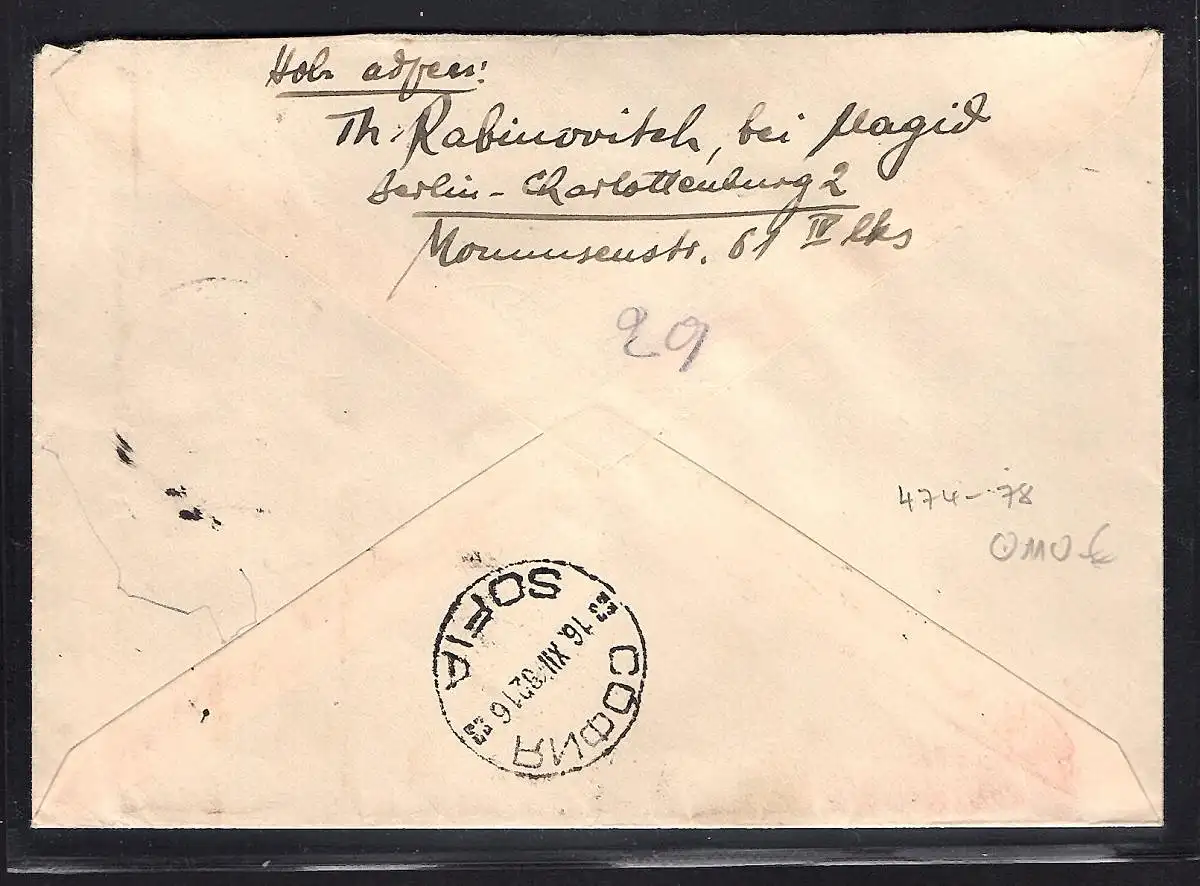 Th. Rabinovitch, bei Magid
Berlin-Charlottenburg 2
Mommsenstr. 61 IV lks
29
474-78
SOFIA
16.XII 32 16
СОФИЯ